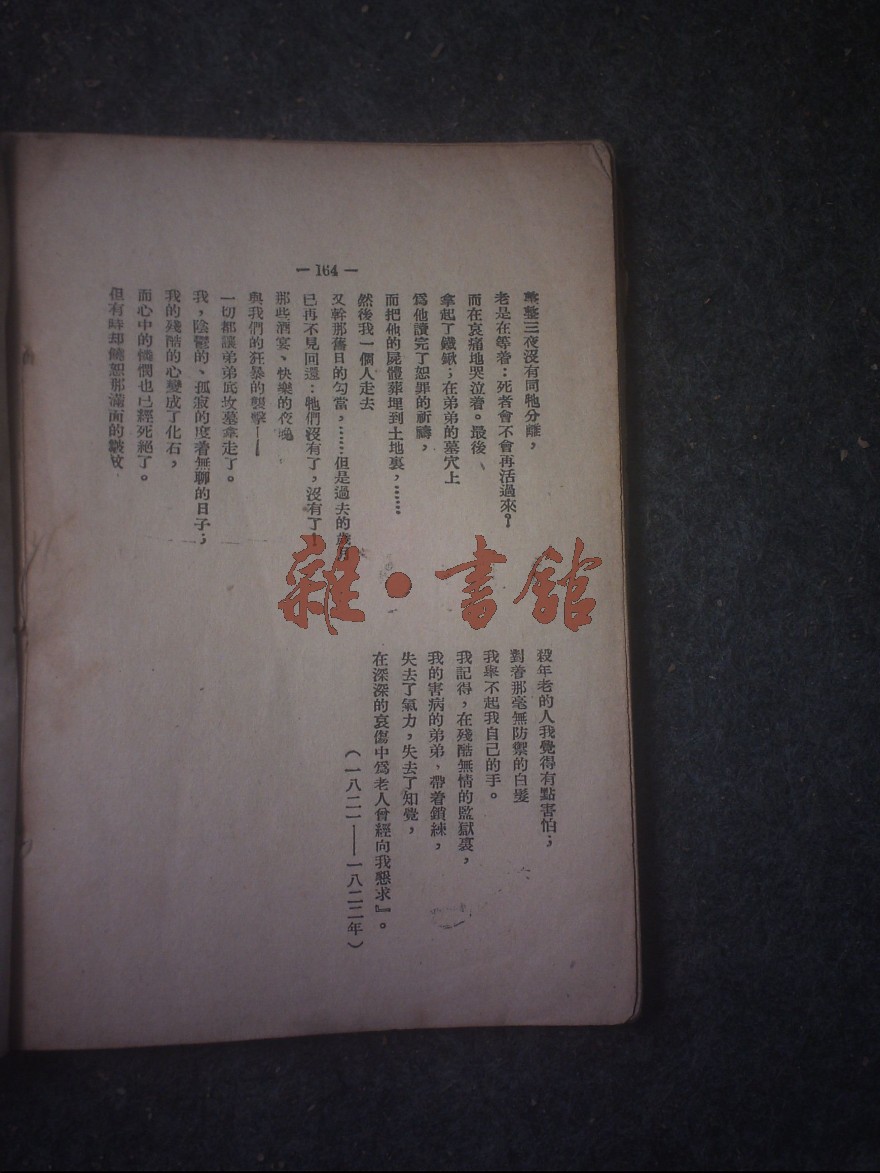 — 164 —
整整三夜沒有同牠分離，
老是在等着：死者會不會再活過來？
而在哀痛地哭泣着。最後、
拿起了鐵鍬；在弟弟的墓穴上
爲他讀完了恕罪的祈禱，
而把他的屍體葬埋到土地裏，……
然後我一個人走去
又幹那舊日的勾當，……但是過去的歲月
已再不見回還：牠們沒有了，沒有了！
那些酒宴、快樂的夜晚
與我們的狂暴的襲擊——
一切都讓弟弟底坟墓拿走了。
我，陰鬱的、孤寂的度着無聊的日子；
我的殘酷的心變成了化石，
而心中的憐憫也已經死絕了。
但有時却饒恕那滿面的皺紋
殺年老的人我覺得有點害怕；
對着那毫無防禦的白髮
我舉不起我自己的手。
我記得，在殘酷無情的監獄裏，
我的害病的弟弟，帶着鎖練，
失去了氣力，失去了知覺，
在深深的哀傷中爲老人曾經向我懇求』。
（一八二一——一八二二年）
雜·書館